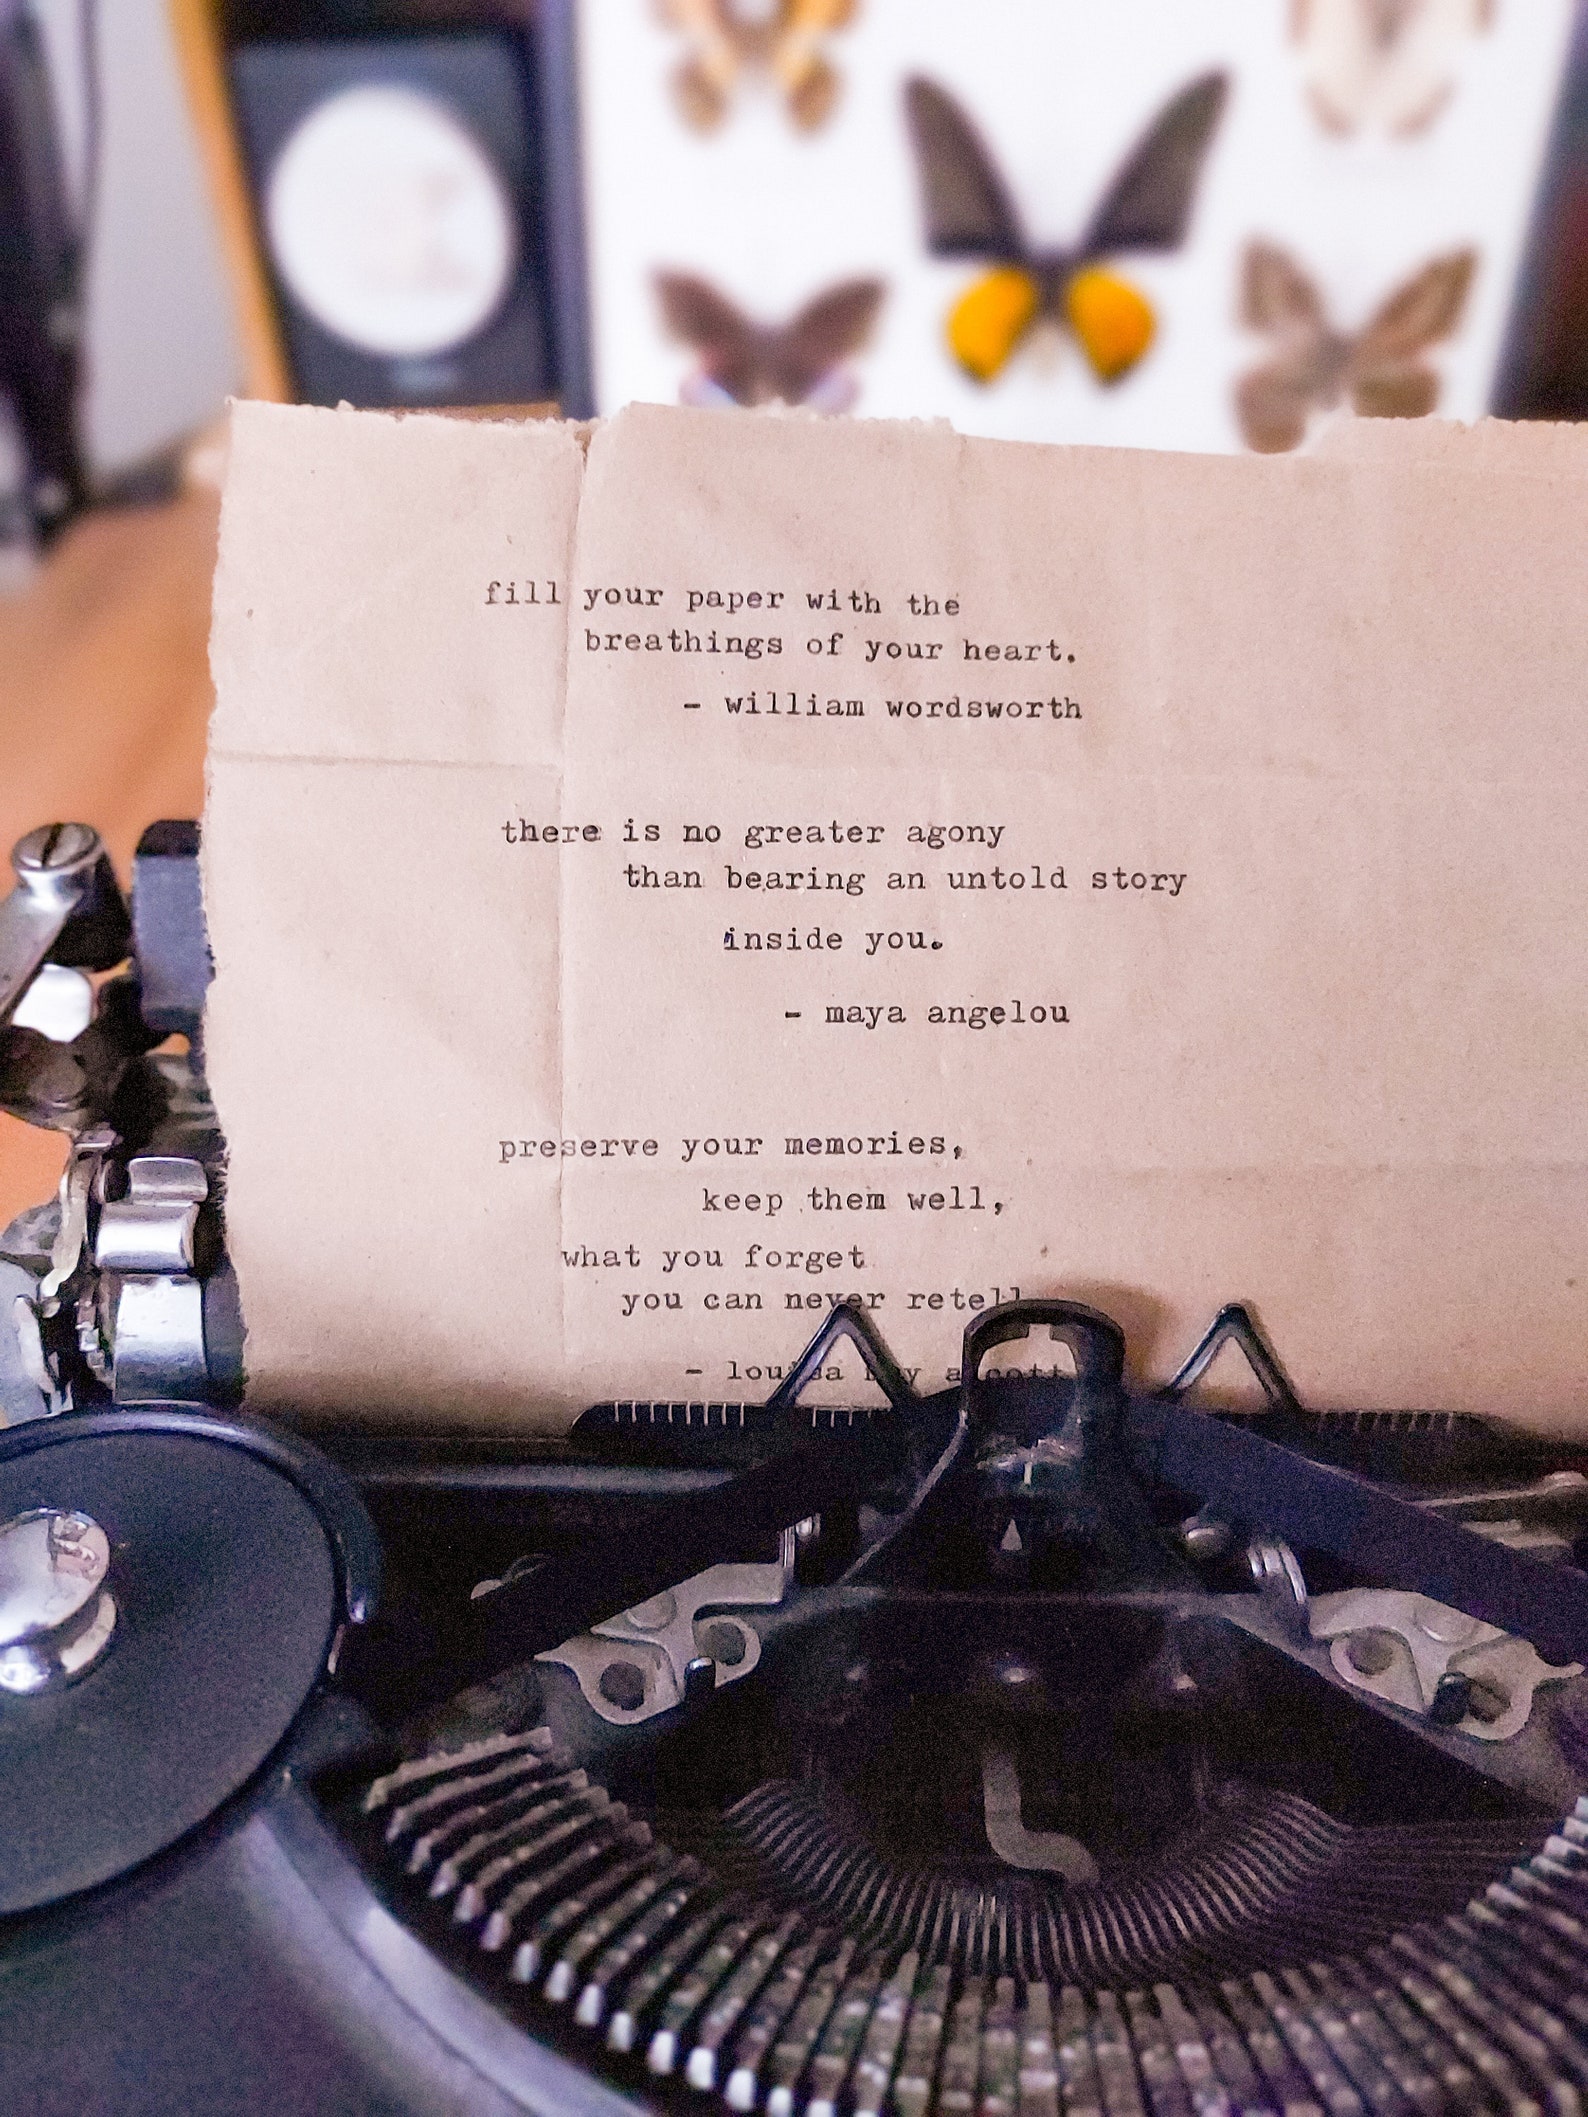 fill your paper with the
breathings of your heart.
- william wordsworth
there is no greater agony
than bearing an untold story
inside you.
- maya angelou
preserve your memories,
keep them well,
what you forget
you can never retell
- louisa may alcott